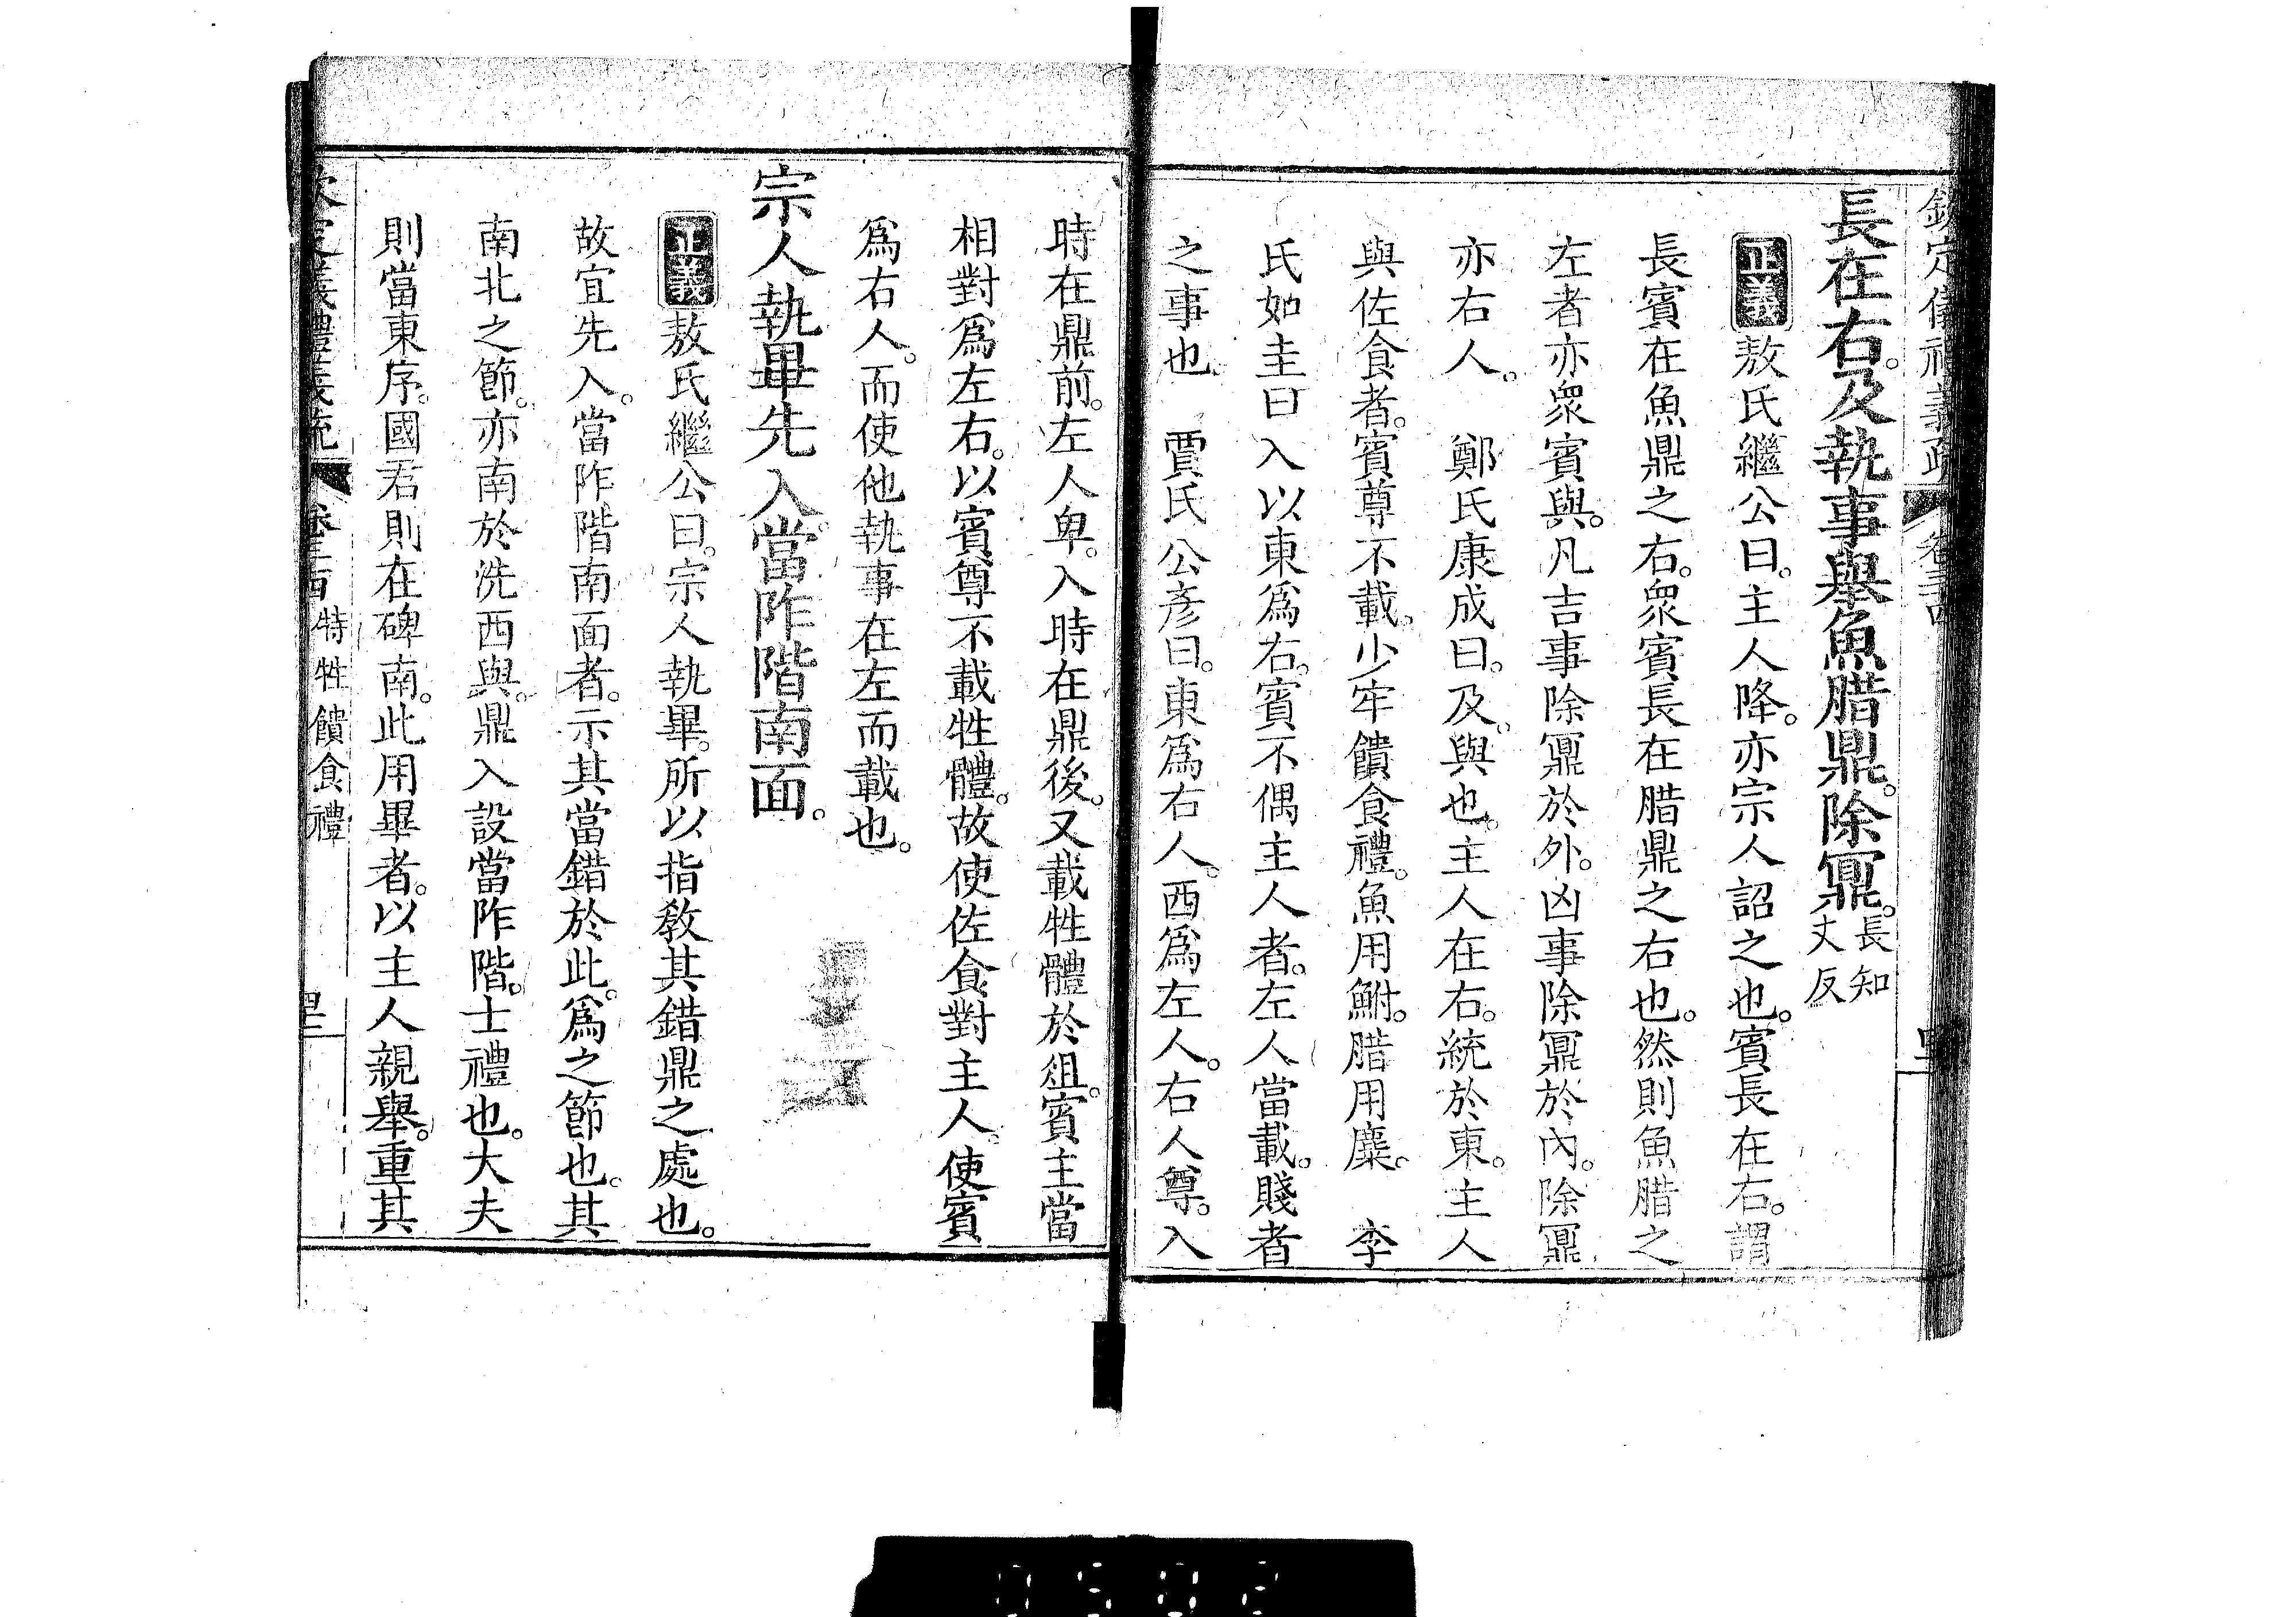 欽定儀禮義疏 卷三十四
長在右。及執事舉魚腊鼎。除鼏。長知丈反
正義敖氏繼公曰。主人降。亦宗人詔之也。賓長在右。謂
長賓在魚鼎之右。眾賓長在腊鼎之右也。然則魚腊之
左者亦眾賓與。凡吉事除鼏於外。凶事除鼏於內。除鼏
亦右人。 鄭氏康成曰。及。與也。主人在右。統於東。主人
與佐食者。賓尊不載。少牢饋食禮。魚用鮒。腊用麋。 李
氏如圭曰入以東為右。賓不偶主人者。左人當載。賤者
之事也。 賈氏公彥曰。東爲右人。西爲左人。右人尊。入
時在鼎前。左人卑。入時在鼎後。又載牲體於俎。賓主當
相對爲左右。以賓尊不載牲體。故使佐食對主人。使賓
爲右人。而使他執事在左而載也。
宗人執畢先入。當阼階南面。
正義敖氏繼公曰。宗人執畢。所以指教其錯鼎之處也。
故宜先入。當阼階南面者。示其當錯於此。爲之節也。其
南北之節。亦南於洗西與。鼎入設當阼階。士禮也。大夫
則當東序。國君則在碑南。此用畢者。以主人親舉。重其
欽定儀禮義疏 卷三十四 特牲饋食禮